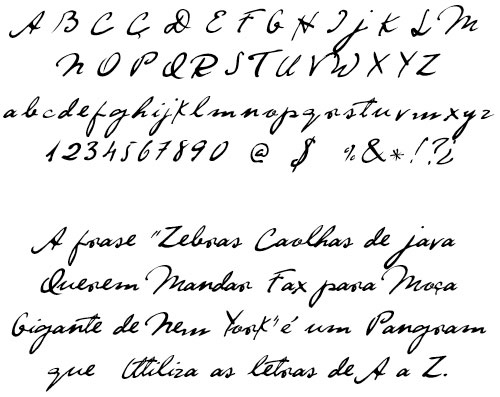 A B C Ç D E F G H I J K L M
N O P Q R S T U V W X Y Z
a b c d e f g h i j k l m n o p q r s t u v w x y z
1 2 3 4 5 6 7 8 9 0 @ $ % & * ! ? ¿
A frase "Zebras Caolhas de java
Querem Mandar Fax para Moça
Gigante de New York" é um Pangram
que Utiliza as letras de A a Z.